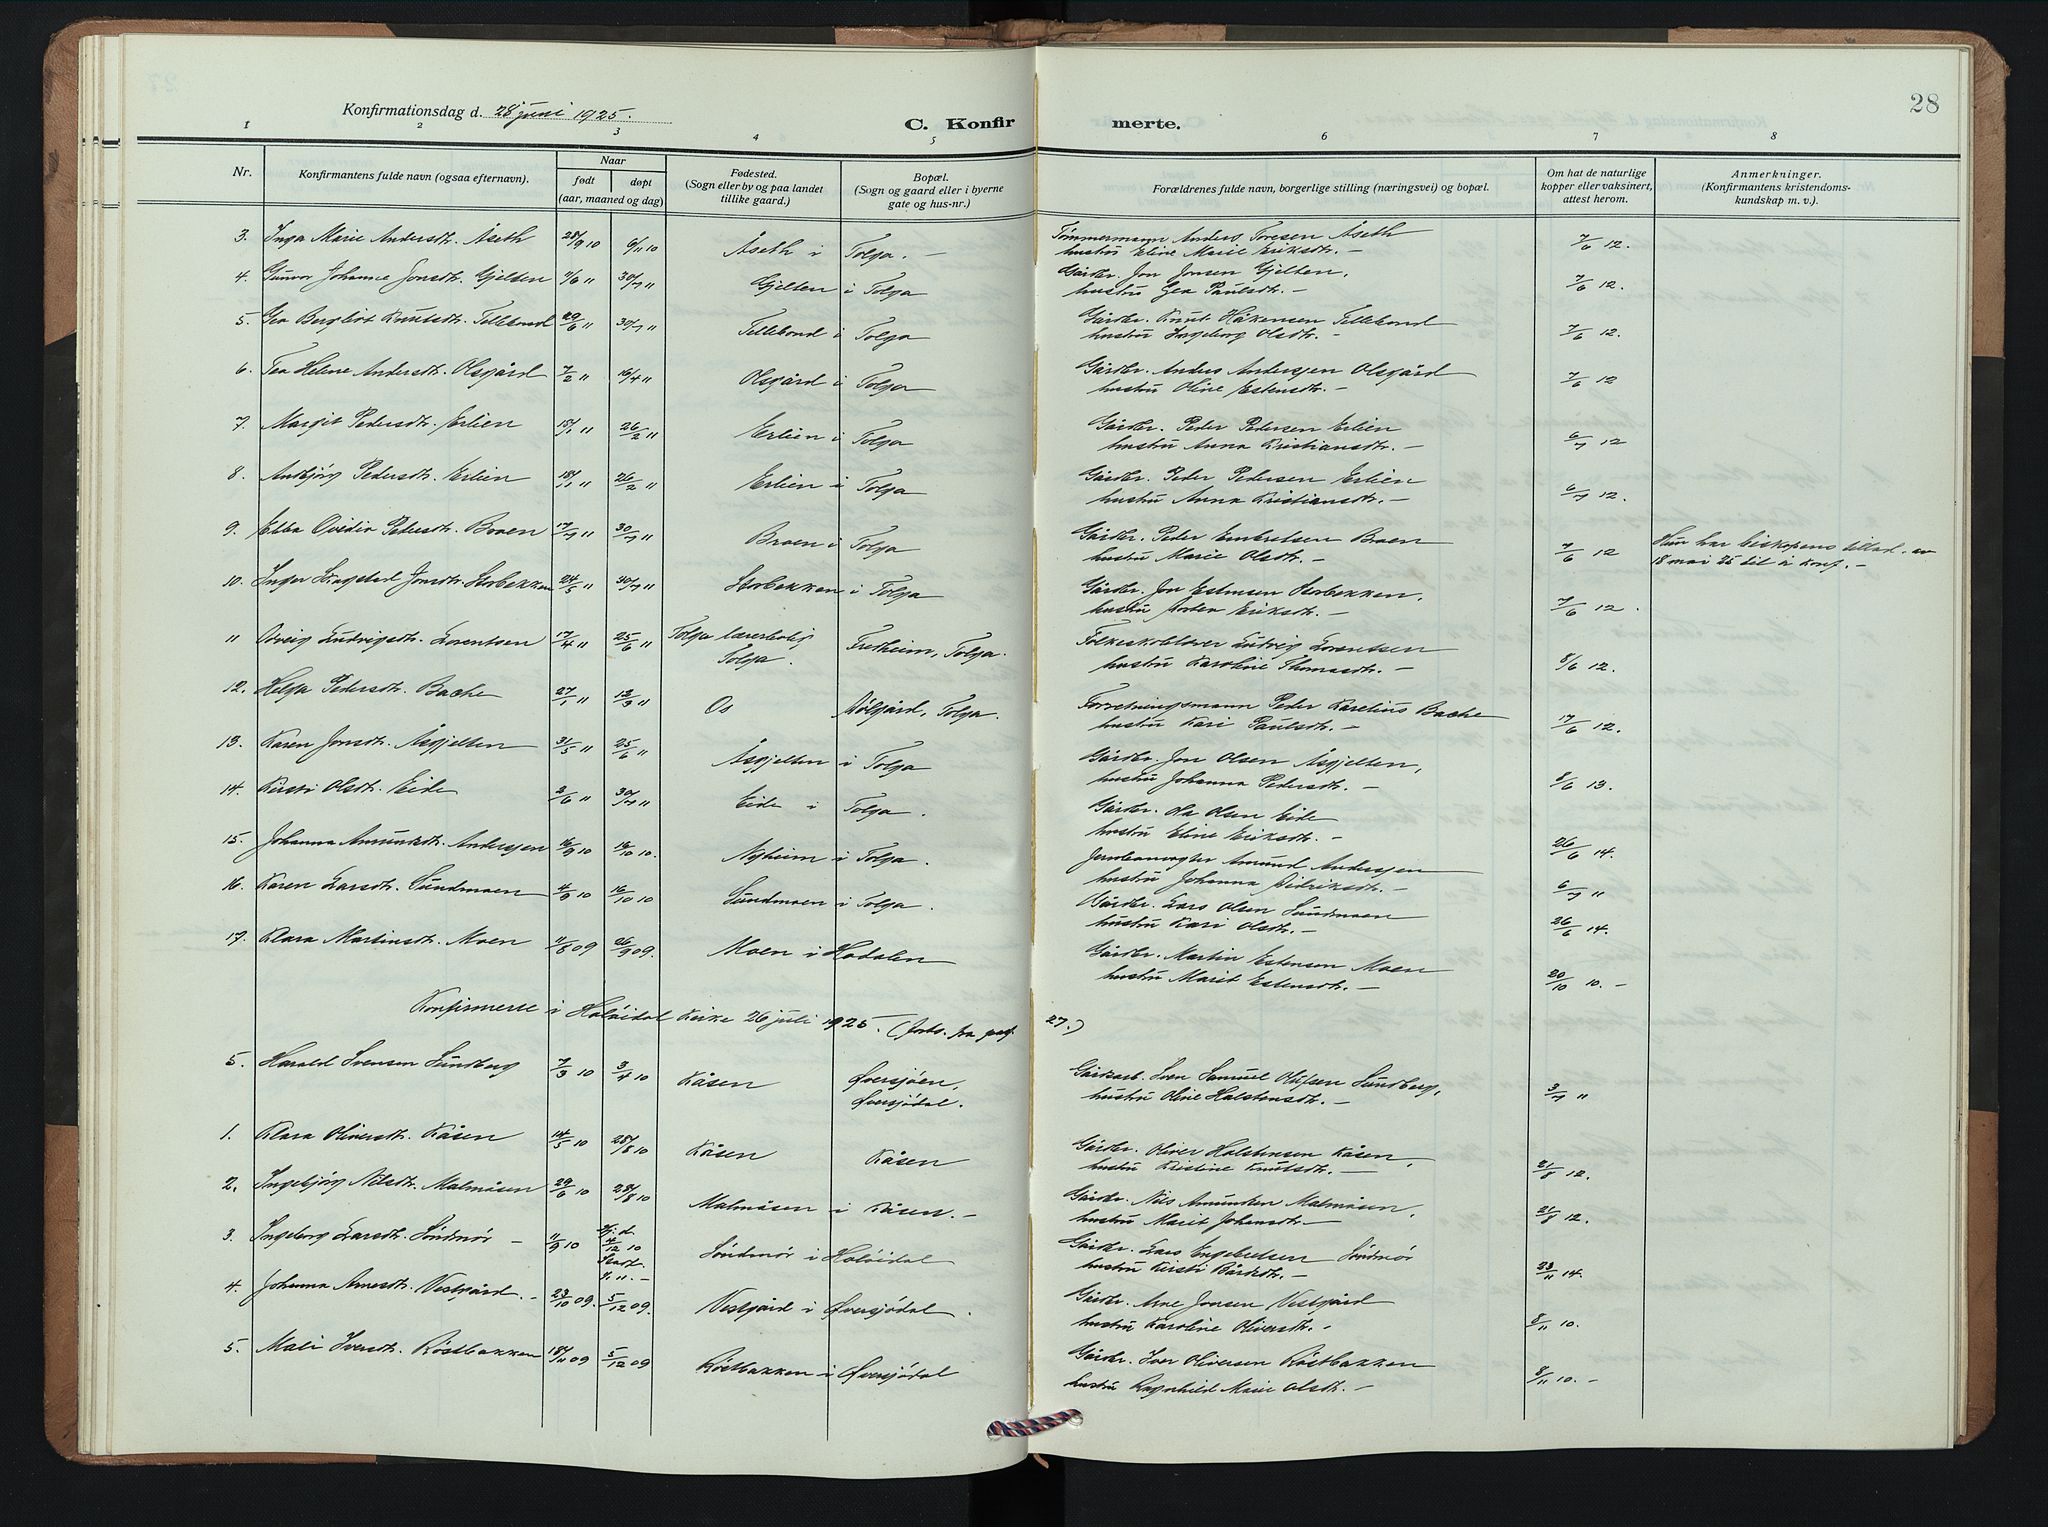 28
Konfirmationsdag d. 28 juni 1925.
C. Konfirmerte.
1 2 3 4 5 6 7 8
Nr. Konfirmantens fulde navn (ogsaa efternavn). Naar født døpt (aar, maaned og dag) Fødested. (Sogn eller by og paa landet tillike gaard.) Bopæl. (Sogn og gaard eller i byerne gate og hus-nr.) Forældrenes fulde navn, borgerlige stilling (næringsvei) og bopæl. Om hat de naturlige kopper eller vaksinert, attest herom. Anmerkninger. (Konfirmantens kristendomskundskap m. v.).
3. Inga Marie Andersdtr. Åseth 28/9 10 6/11 10 Åseth i Tolga. – Tømmermann Anders Toresen Åseth 7/6 12.
hustru Eline Marie Eriksdtr. –
4. Gunvor Johanne Jonsdtr. Gjelten 7/6 " 30/7 " Gjelten i Tolga Gårdbr. Jon Jonsen Gjelten, 7/6 12.
hustru Gea Paulsdtr. –
5. Gea Bergliot Knutsdtr. Tellebond 29/6 " 30/7 " Tellebond i Tolga Gårdbr. Knut Håkensen Tellebond 7/6 12.
hustru Ingeborg Olsdtr. –
6. Tea Helene Andersdtr. Olsgård 7/2 " 16/4 " Olsgård i Tolga Gårdbr. Anders Anderssen Olsgård 7/6 12
hustru Oline Estensdtr. –
7. Margit Pedersdtr. Erlien 15/1 " 26/2 " Erlien i Tolga Gårdbr. Peder Pedersen Erlien 6/7 12
hustru Anna Kristiansdtr. –
8. Anbjørg Pedersdtr. Erlien 18/11 " 26/2 " Erlien i Tolga Gårdbr. Peder Pedersen Erlien 6/7 12.
hustru Anna Kristiansdtr. –
9. Ebba Ovedia Pedersdtr. Broen 17/7 " 30/7 " Broen i Tolga Gårdbr. Peder Embretsen Broen 7/6 12 Hun har biskopens tillad. av
hustru Marie Olsdtr. – 18 mai 25 til å konf. –
10. Inger Jonsdtr. Storbekken 24/5 " 30/7 " Storbekken i Tolga Gårdbr. Jon Estensen Storbekken, 7/6 12.
hustru Eriksdtr. –
11 Ludvigsdtr. Lorentsen 17/4 " 25/6 " Tolga lærerbolig Tolga. Fredheim, Tolga. Folkeskolelærer Ludvig Lorentsen 8/6 12.
hustru Karoline Thomasdtr. –
12. Helga Pedersdtr. Bache 27/1 " 12/3 " Os Tolga. Forretningsmann Peder Karelius Bache 17/6 12.
hustru Kari Paulsdtr. –
13. Karen Jonsdtr. Åsgjelten 31/5 " 25/6 " Åsgjelten i Tolga Gårdbr. Jon Olsen Åsgjelten, 8/6 13.
hustru Johanna Pedersdtr. –
14. Kirsti Olsdtr. Eide 3/6 " 30/7 " Eide i Tolga. Gårdbr. Ola Olsen Eide 26/6 14.
hustru Eline Eriksdtr. –
15. Johanna Amundsdtr. Anderssen 16/9 10 16/10 10. Nyheim i Tolga. Jernbanevogter Amund Anderssen 6/7 "
hustru Johanna Didriksdtr. –
16. Karen Larsdtr. Sundmoen 4/9 10 16/10 10 Sundmoen i Tolga. Gårdbr. Lars Olsen Sundmoen 26/6 14.
hustru Kari Olsdtr. –
17. Klara Martinsdtr. Moen 11/8 09 26/9 09. Moen i Hodalen Gårdbr. Martin Estensen Moen 20/10 10. –
hustru Marit Estensdtr. –
Konfirmerte i Holøidal Kirke 26 juli 1925. (forts. fra pag. 27.)
5. Harald Svensen Sundberg 7/3 10 3/4 10 Kåsen Øversjøen, Øversjødal. Gårdsarb. Sven Samuel Olufsen Sundberg, 3/7 "
hustru Oline Halstensdtr. –
1. Klara Oliversdtr. Kåsen 14/5 10 28/8 10 Kåsen Kåsen Gårdbr. Oliver Halstensen Kåsen, 21/8 12.
hustru Kristine Knutsdtr. –
2. Ingebjørg Nilsdtr. Malmåsen 29/6 10 28/8 10 Malmåsen i Kåsen. – Gårdbr. Nils Amundsen Malmåsen, 21/8 12.
hustru Marit Johansdtr. –
3. Ingeborg Larsdtr. Søndmør – 11/9 10 Hj. d. 4/12 10 Søndmør i Holøidal Gårdbr. Lars Engebretsen Søndmør 23/11 14.
hustru Kirsti Bårdsdtr. –
4. Johanna Arnesdtr. Vestgård. – 23/10 09. 5/12 09. Vestgård i Øversjødal. Gårdbr. Arne Jonsen Vestgård 8/11 10.
hustru Karoline Oliversdtr. –
5. Mali Iversdtr. Röstbakken 18/11 09 5/12 09 Röstbakken i Øversjødal Gårdbr. Iver Oliversen Röstbakken 8/11 10. –
hustru Ragnhild Marie Olsdtr. –